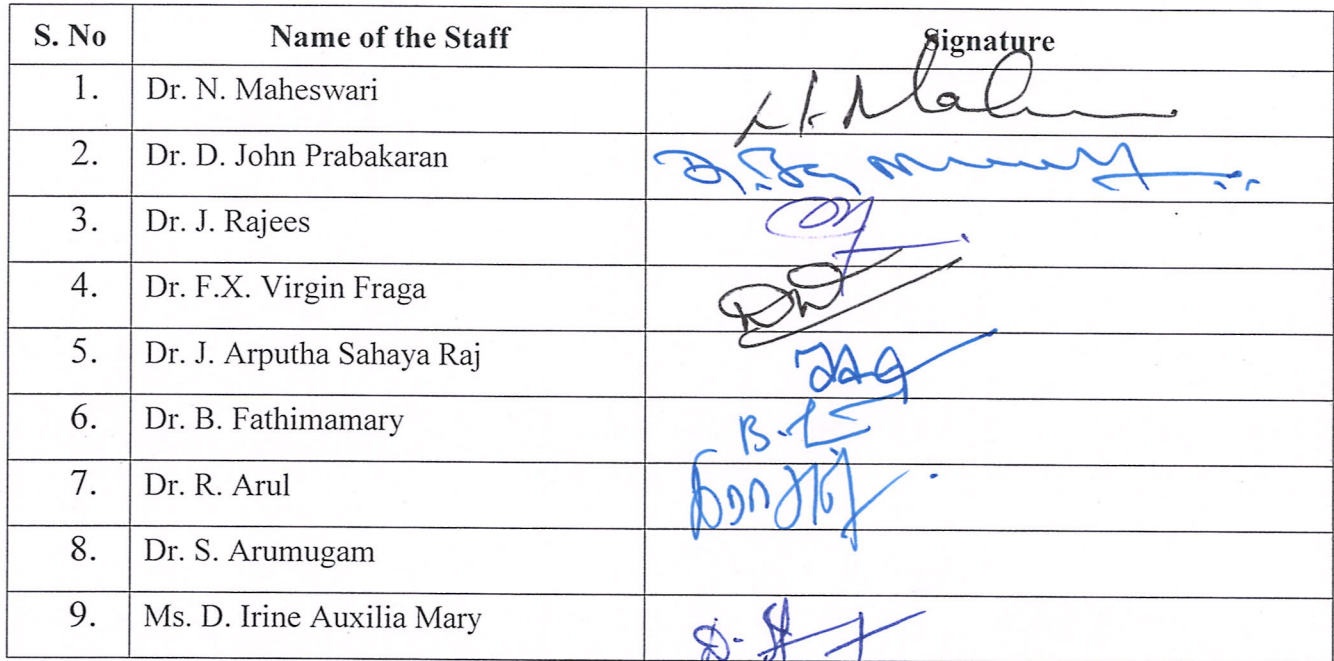 S. No Name of the Staff Signature
1. Dr. N. Maheswari
2. Dr. D. John Prabakaran
3. Dr. J. Rajees
4. Dr. F.X. Virgin Fraga
5. Dr. J. Arputha Sahaya Raj
6. Dr. B. Fathimamary
7. Dr. R. Arul
8. Dr. S. Arumugam
9. Ms. D. Irine Auxilia Mary